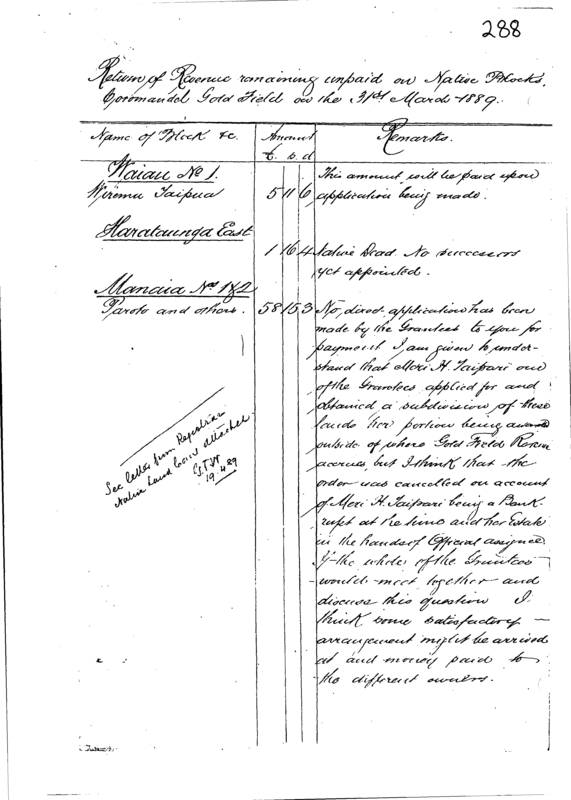 288
Return of Revenue remaining unpaid on Native Blocks,
Coromandel Gold Field on the 31st March 1889.
Name of Block &c. Amount Remarks.
£. s. d
Waiau No 1. This amount will be paid upon
Wiremu Taipua 5 11 6 application being made.
Harataunga East
1 16 4 Native Dead. No successors
yet appointed.
Manaia Nos 1 & 2
and others. 58 15 3 No, direct application has been
made by the Grantees to you for
payment. I am given to under-
stand that Meri H. Taipari one
of the Grantees applied for and
obtained a subdivision of these
lands her portion being
outside of where Gold Field Reven
accrues but I think that the
order was cancelled on account
of Meri H. Taipari being a Bank-
rupt at the time and her Estate
in the hands of Official assignee
If the whole of the Grantees
would meet together and
discuss this question I
think some satisfactory –
arrangement might be arrived
at and money paid to
the different owners.
See letter from Registrar
Native Land Court attached
19.4.89